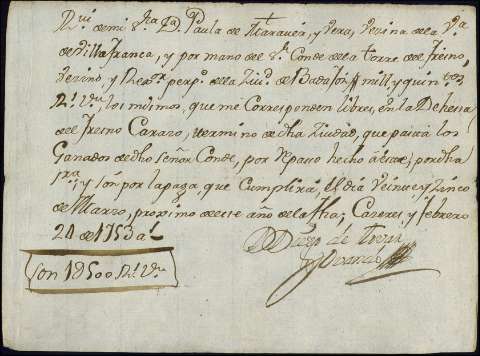 Rvi de mi Sra Da. Paula de Tharaver, y Vera, Vezina de la Va.
de Villa Franca, y por mano del Sr. Conde de la torre del Fresno,
Vezino, y Rexor. perpo. de la Ziud. de Badajoz mill y quintos
Rs. Vn. los mismos, que me Corresponden libres, en la Dehesa
del Fresno Carazo, termino de dha Ziudad, que pasta los
Ganados de dho Señor Conde, por Reparto hecho a por dha
Sra. y son por la paga, que Cumplirá, el dia Veinte y Zinco
de Marzo, proximo de este año de la fha; Cazeres, y febrero
20 de 1753 as
Dn Diego de
Son 1500 Rs. Vn.